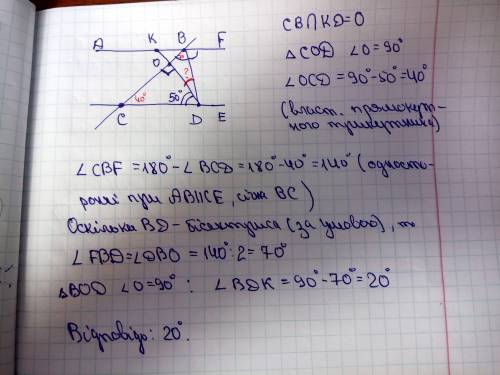 A K B F
O
?
40° 50°
C D E
CB∩KD=O
△COD ∠O=90°
∠OCD=90°-50°=40°
(власт. прямокут-
ного трикутника)
∠CBF=180°-∠BCD=180°-40°=140° (одност-
ронні при AB||CE, січн BC)
Оскільки BD-бісектриса (за умовою), то
∠FBD=∠DBO=140°:2=70°
△BOD ∠O=90°: ∠BDK=90°-70°=20°
Відповідь: 20°.